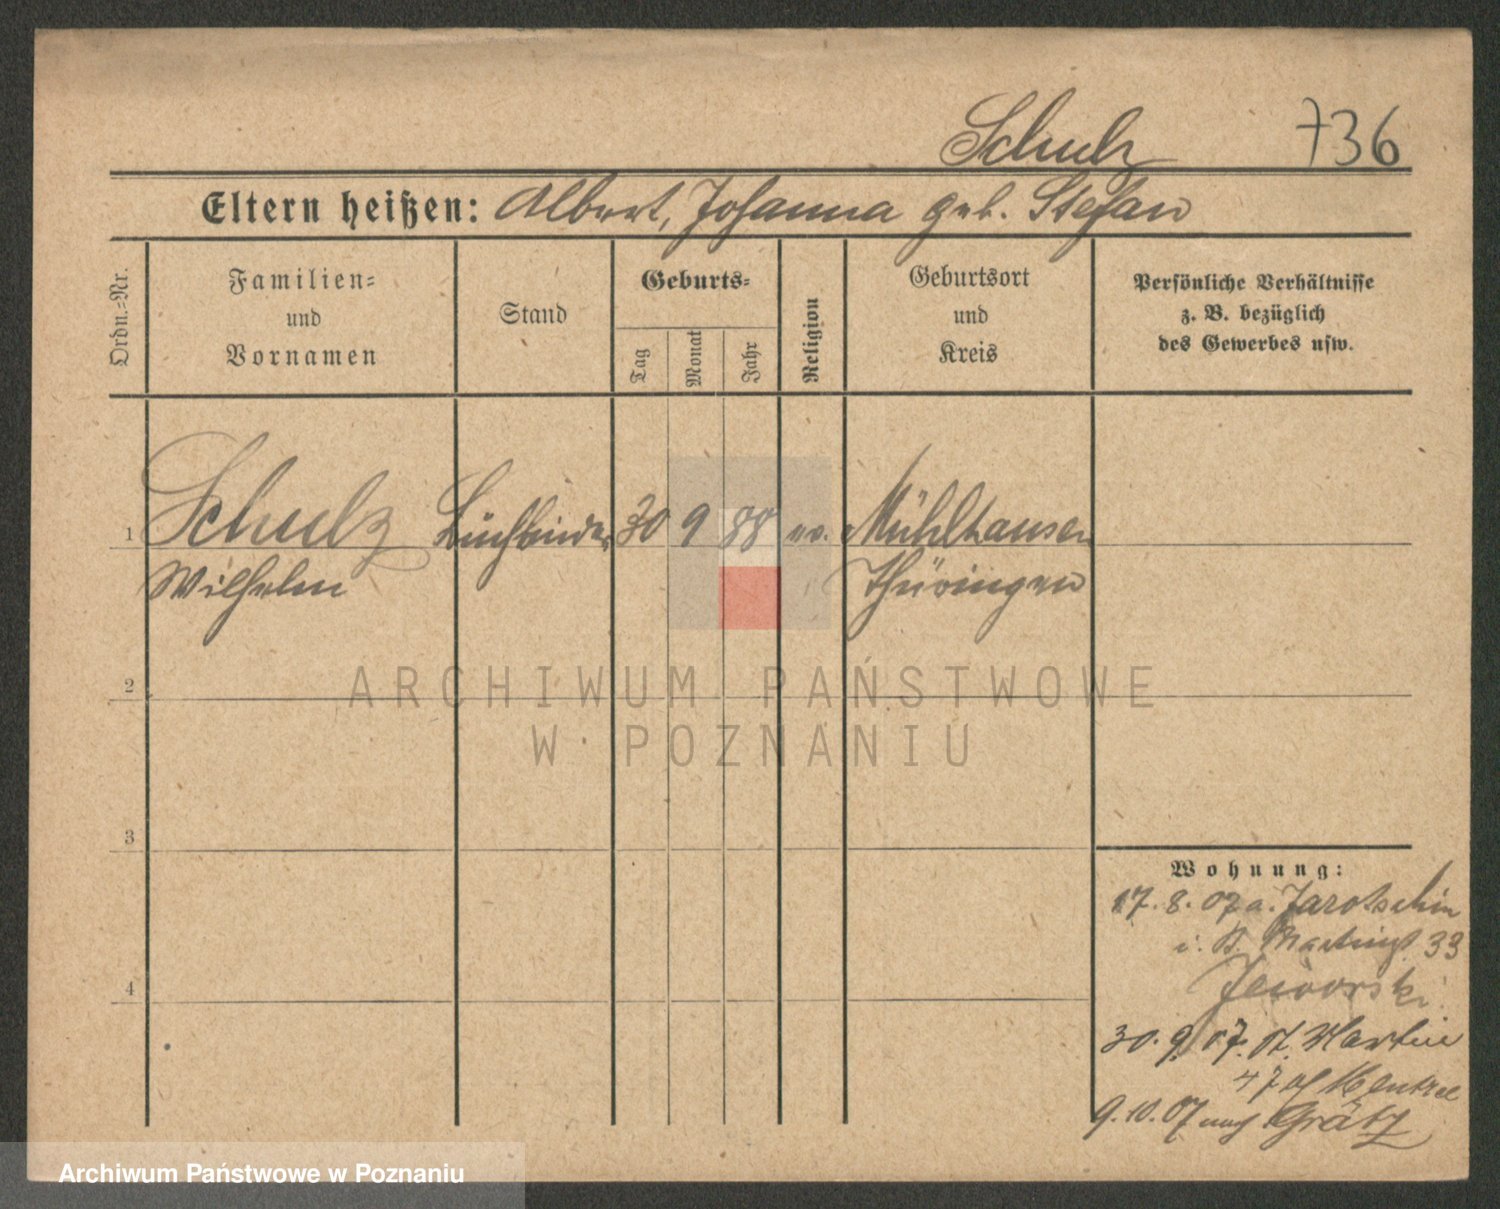 Schulz 736
Eltern heißen: Albert, Johanna geb. Stefan
Ordn.=Nr.
Familien=
und
Vornamen
Stand
Geburts=
Tag
Monat
Jahr
Religion
Geburtsort
und
Kreis
Persönliche Verhältnisse
z. B. bezüglich
des Gewerbes usw.
1 Schulz Buchbinder 30 9 88 ev. Mühlhausen
Wilhelm Thüringen
2
3
4
Wohnung:
17. 8. 07 a. Jarotschin
33
30. 9. 07. St. Martin
47
9. 10. 07 nach Grätz
ARCHIWUM PAŃSTWOWE
W POZNANIU
Archiwum Państwowe w Poznaniu